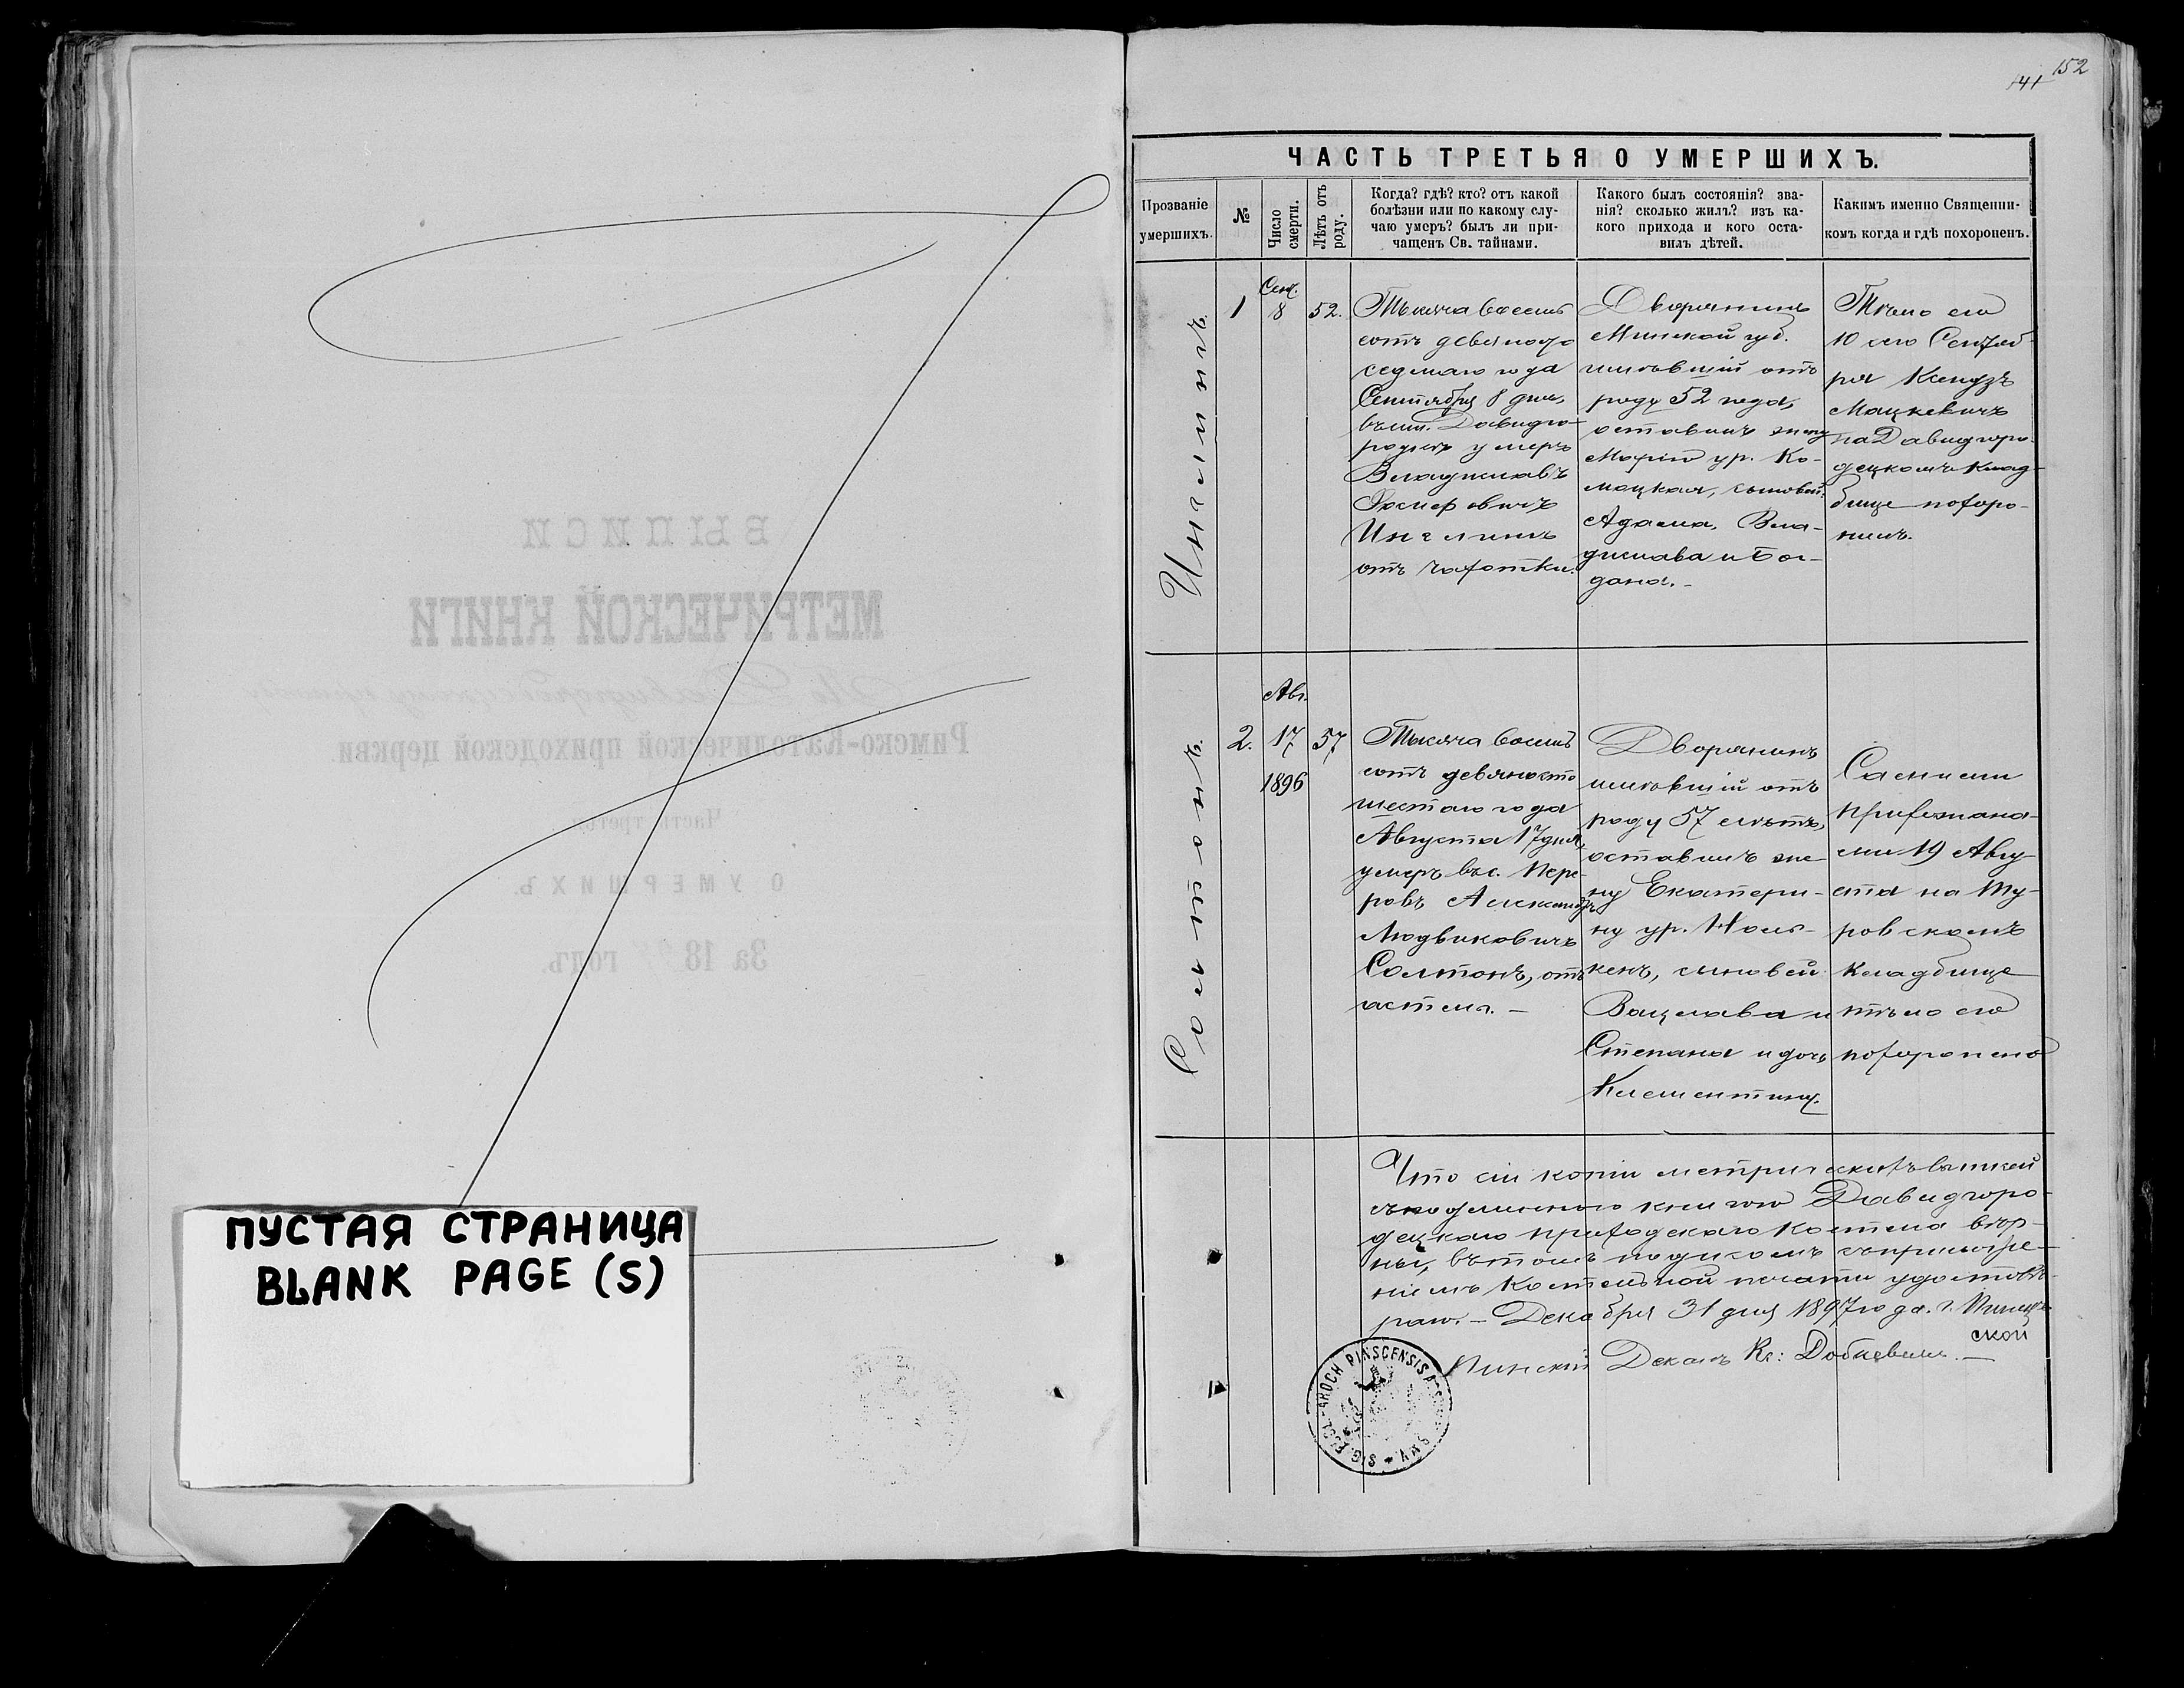 ПУСТАЯ СТРАНИЦА
BLANK PAGE (S)
141 152
ЧАСТЬ ТРЕТЬЯ О УМЕРШИХЪ.
Прозваніе
умершихъ.
№
Число
смерти.
Лѣтъ отъ
роду.
Когда? гдѣ? кто? отъ какой
болѣзни или по какому слу-
чаю умеръ? былъ ли при-
чащенъ Св. тайнами.
Какого былъ состоянія? зва-
нія? сколько жилъ? изъ ка-
кого прихода и кого оста-
вилъ дѣтей.
Какимъ именно Священни-
комъ когда и гдѣ похороненъ.
Ингелингъ.
1
Сен.
8
52.
Тысяча восемь
сотъ девяносто
седмаго года
Сентября 8 дня,
въ им. Давидго-
родкѣ умеръ
Владиславъ
Ингелингъ
отъ чахотки.
Дворянинъ
Минской губ.
имѣвшій отъ
роду 52 года,
оставилъ жену
Марію ур. Ко-
мацкая, сыновей:
Адама, Вла-
дислава и Бог-
дана. –
Тѣло его
10 сего Сентяб-
ря Ксендзъ
Мацкевичъ
на Давидгоро-
децкомъ клад-
бище похоро-
нилъ.
Солтонъ.
2.
Авг.
17
1896
57
Тысяча восемь
сотъ девяносто
шестаго года
Августа 17 дня,
умеръ въ с. Пере-
ровъ Александръ
Людвиковичъ
Солтонъ, отъ
астмы. –
Дворянинъ
имѣвшій отъ
роду 57 лѣтъ,
оставилъ же-
ну Екатери-
ну ур.
кенъ, сыновей
Вацлава и
Степана и дочь
Клементину.
Самими
прихожана-
ми 19 Авгу-
ста на Ту-
ровскомъ
кладбище
тѣло его
похоронено
Что сіи копіи метрическихъ выписей
съ подлинною книгою Давидгоро-
децкаго приходскаго костела вѣр-
ны, въ томъ подписомъ съ приложе-
ніемъ костельной печати удостовѣ-
ряю. – Декабря 31 дня 1897 года. г. Пинскъ
Пинскій Деканъ Кс: –
PINSCENSIS